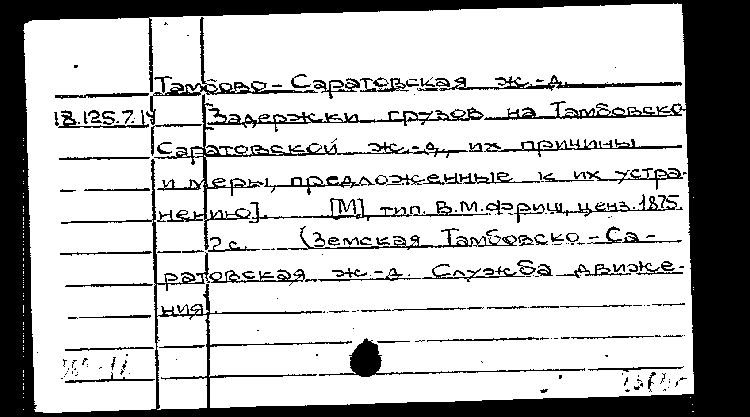 Тамбово-Саратовская ж.-д.
18.125.7.14 [Задержки грузов на Тамбовско-
Саратовской ж.-д., их причины
и меры, предложенные к их устра-
нению]. [М], тип. В.М.Фриш, ценз. 1875.
2 с. (Земская Тамбовско-Са-
ратовская ж.-д. Служба движе-
ния)